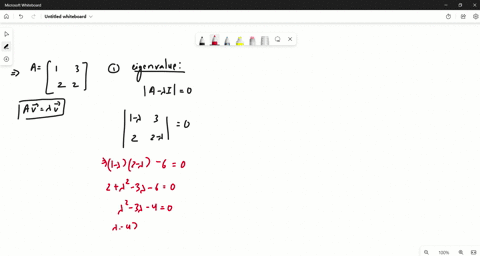 Microsoft Whiteboard
Untitled whiteboard
⇒ A = [1 3
2 2]
① eigenvalue:
Av⃗ = λv⃗
|A-λI| = 0
|1-λ 3
2 2-λ| = 0
⇒ (1-λ)(2-λ) - 6 = 0
2 + λ² - 3λ - 6 = 0
λ² - 3λ - 4 = 0
λ - 4)
100%